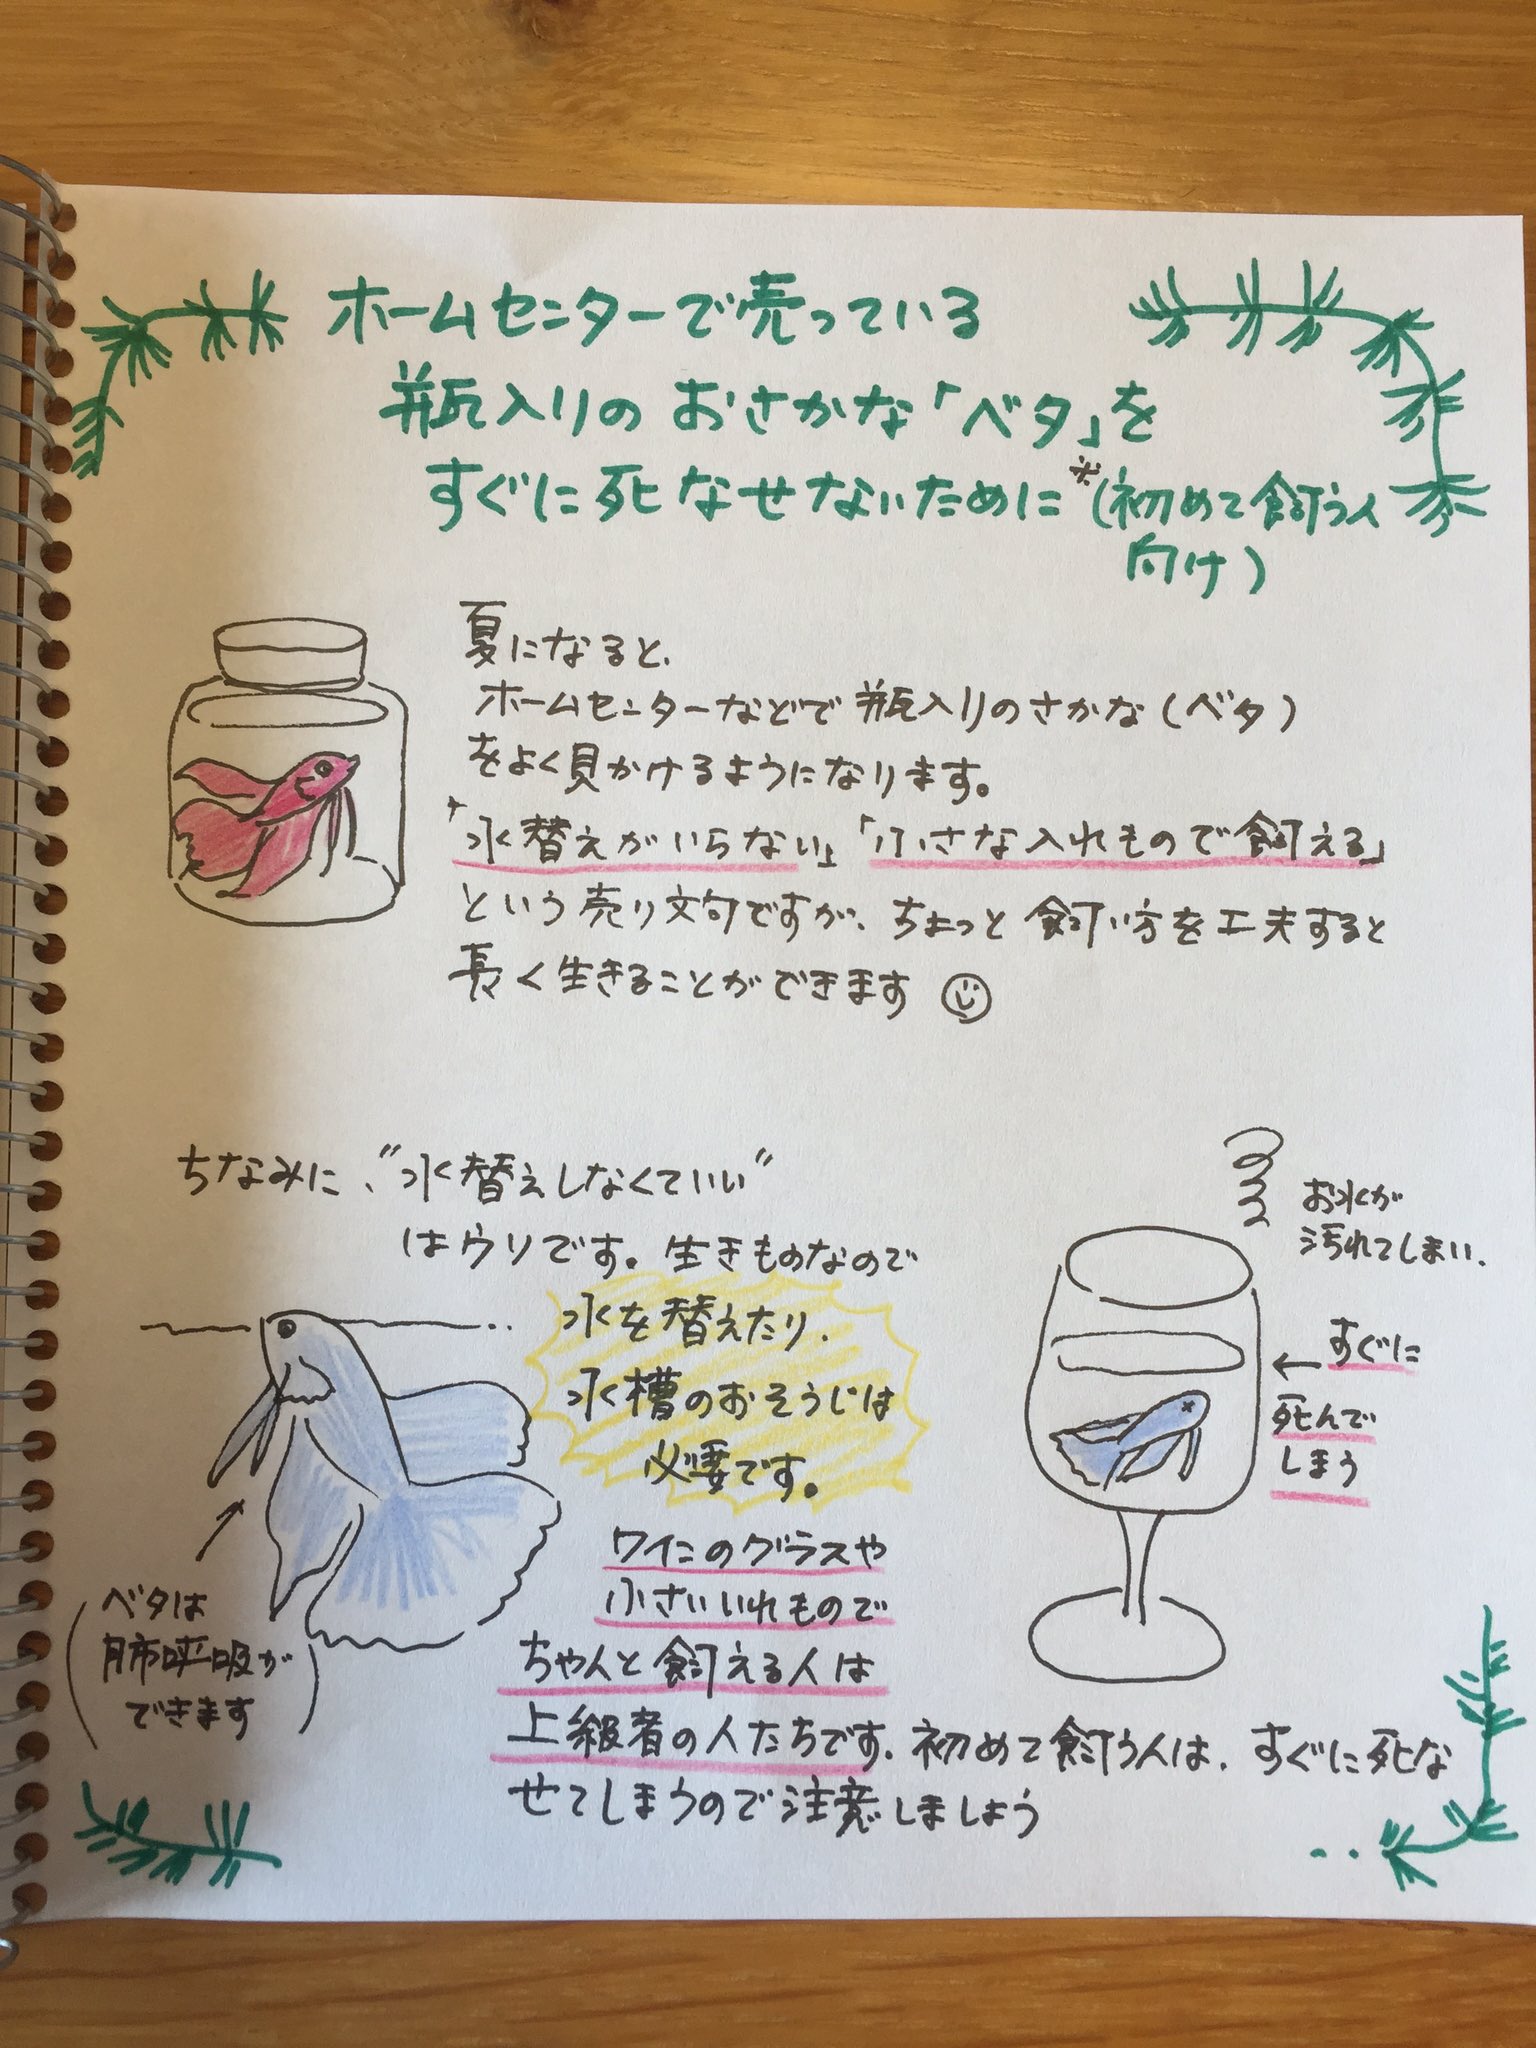 ホームセンターで売っている
瓶入りのおさかな「ベタ」を
すぐに死なせないために※(初めて飼う人
向け)
夏になると、
ホームセンターなどで瓶入りのさかな(ベタ)
をよく見かけるようになります。
「水替えがいらない」「小さな入れもので飼える」
という売り文句ですが、ちょっと飼い方を工夫すると
長く生きることができます
ちなみに、"水替えしなくていい"
はウソです。生きものなので
水を替えたり、
水槽のおそうじは
必要です。
ベタは
肺呼吸が
できます
お水が
汚れてしまい、
← すぐに
死んで
しまう
ワインのグラスや
小さいいれもので
ちゃんと飼える人は
上級者の人たちです。初めて飼う人は、すぐに死な
せてしまうので注意しましょう